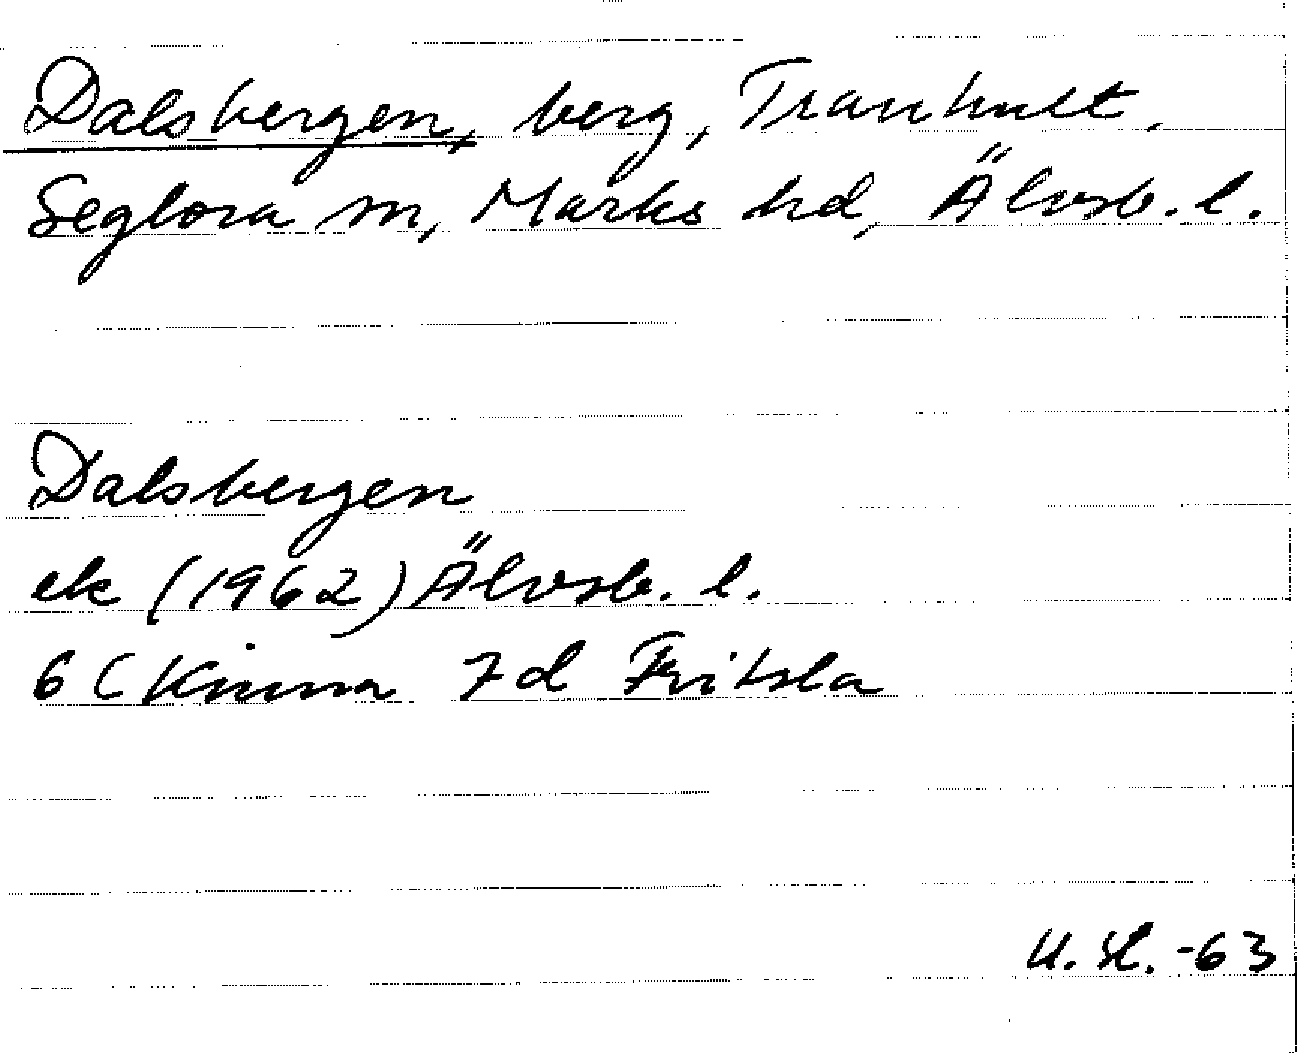 Dalsbergen, berg, Tranhult,
Seglora sn, Marks hd, Älvsb. l.
Dalsbergen
ek (1962) Älvsb. l.
6 C Kinna 7d Fritsla
U. H. -63